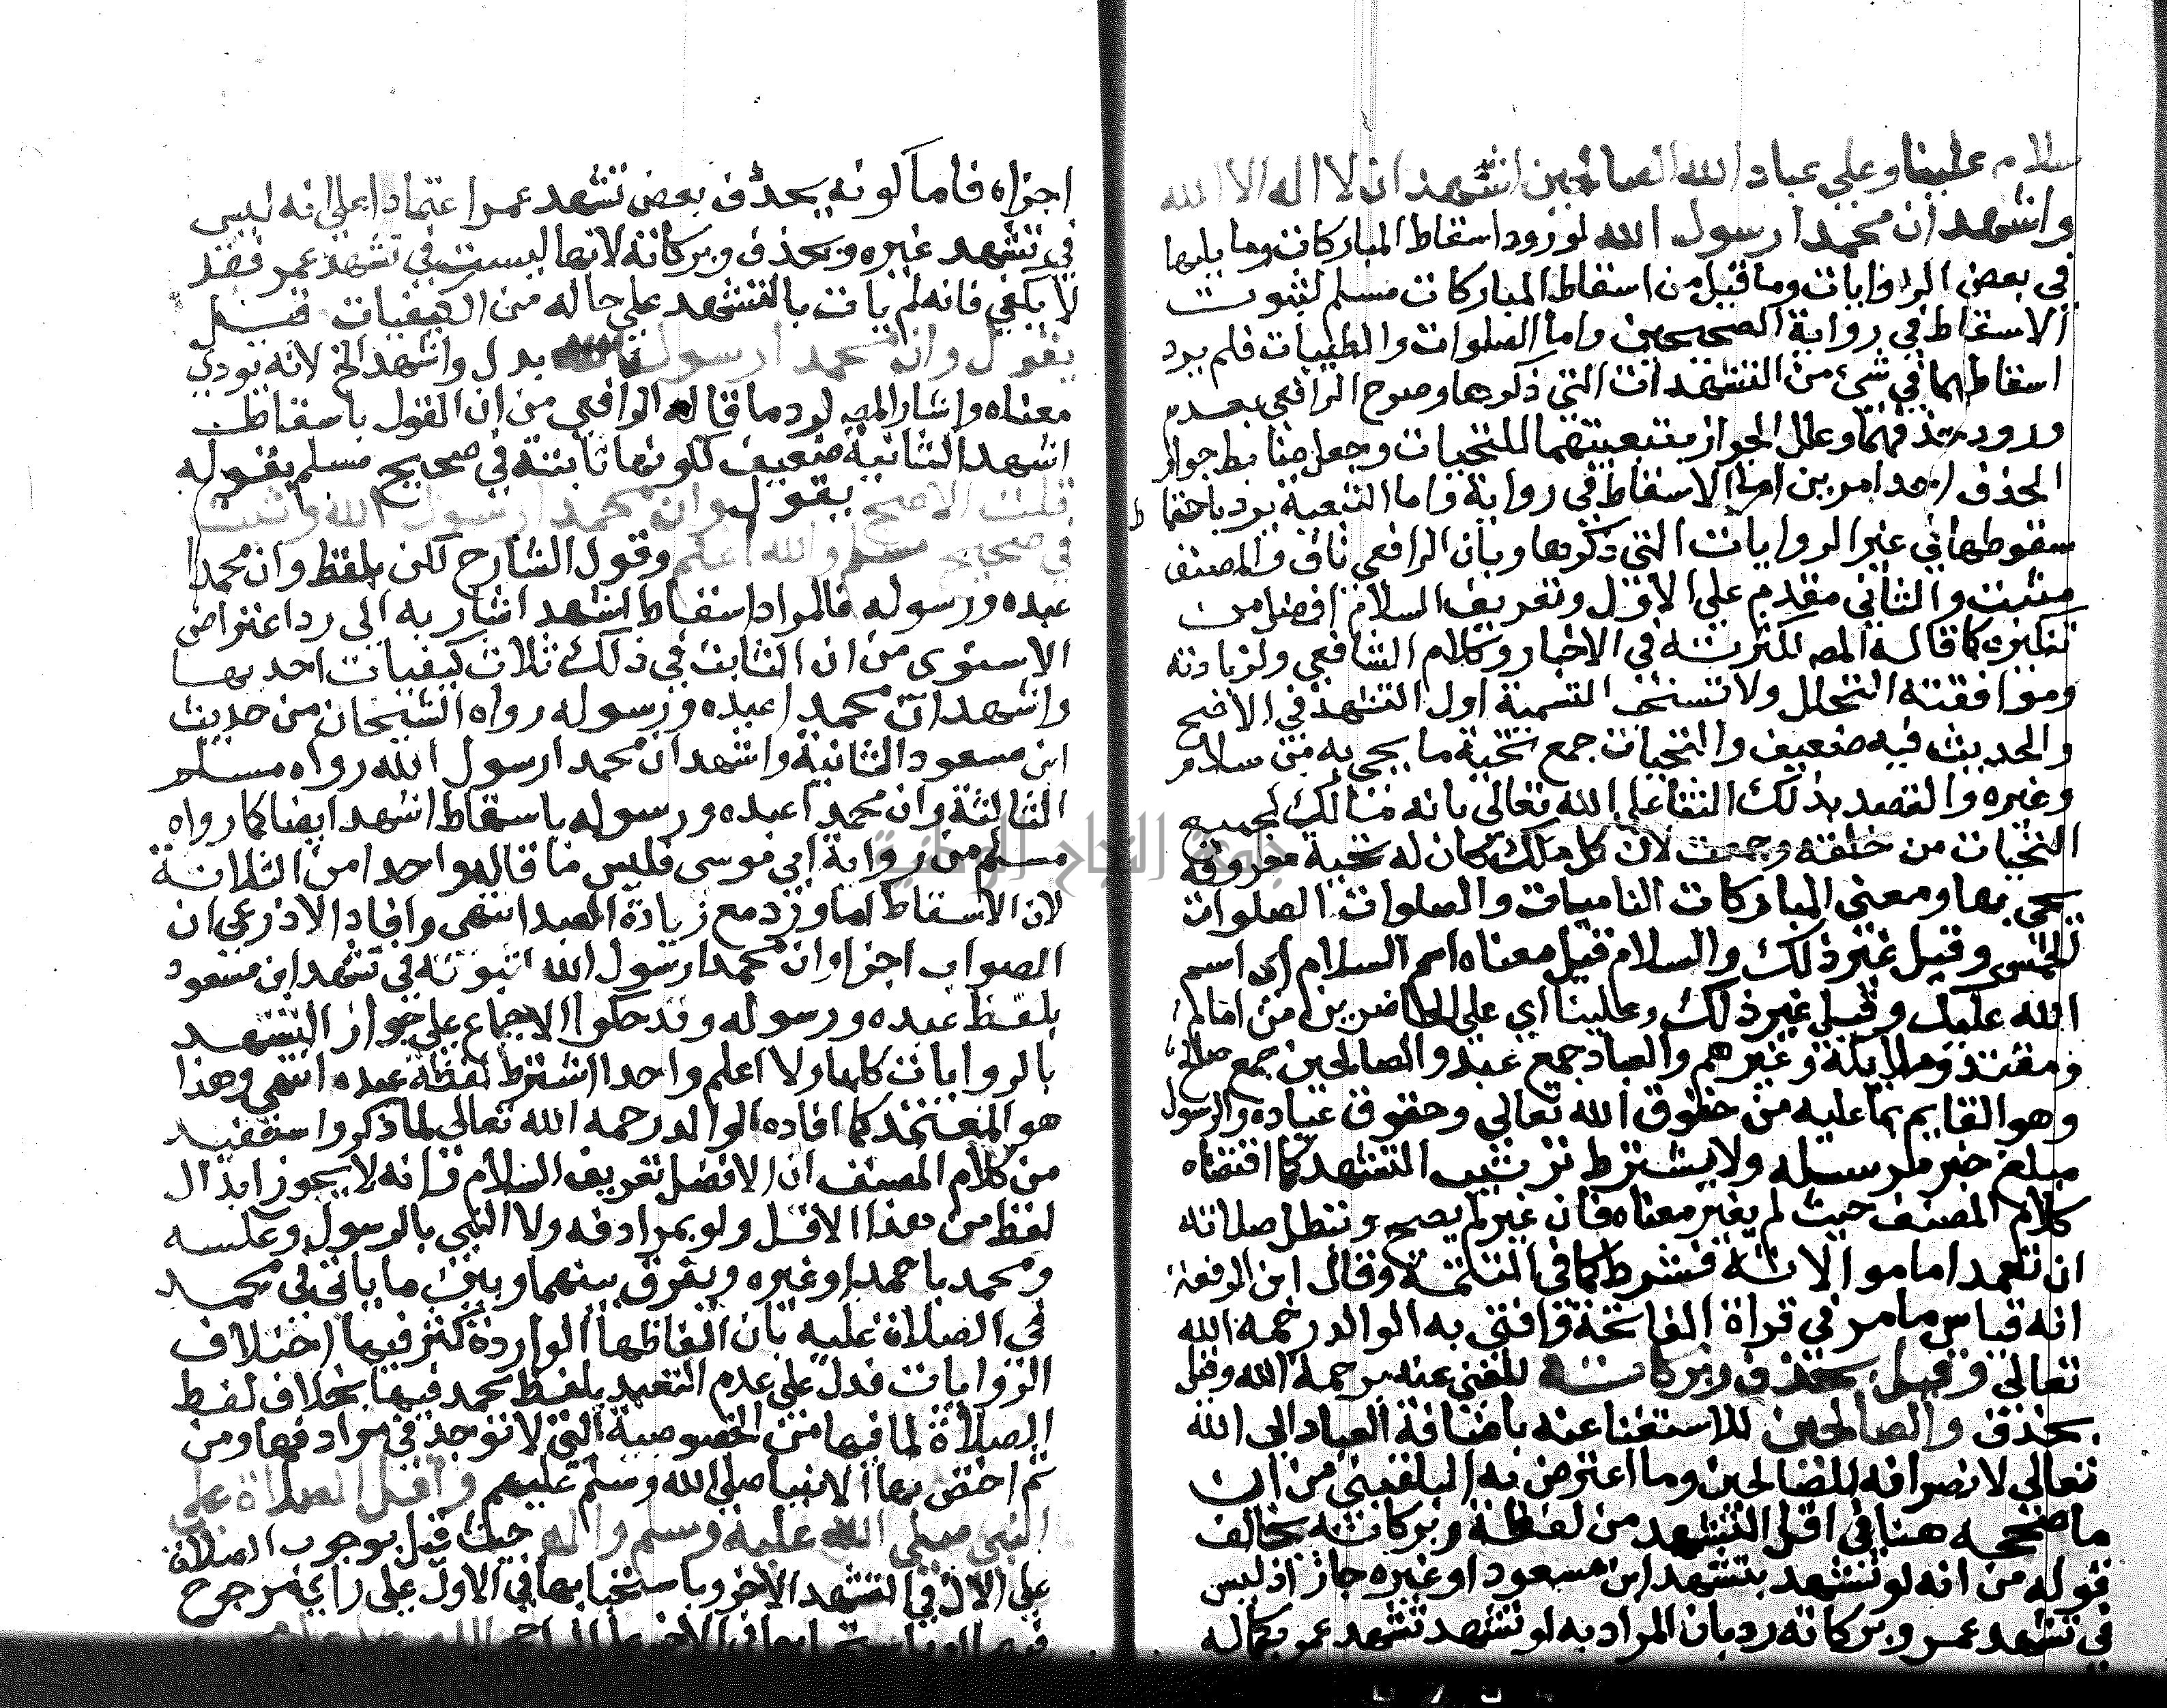 سلام علينا وعلي عباد الله الصالحين اشهد ان لا اله الا الله
واشهد ان محمدا رسول الله لورود اسقاط المباركات وما يليها
في بعض الروايات وما قيل من اسقاط المباركات مسلم لثبوت
الاسقاط في رواية الصحيحين واما الصلوات والطيبات فلم يرد
اسقاطهما في شئ من التشهدات التي ذكرها وصرح الرافعي بعدم
ورود حذفهما وعلل الجواز بتبعيتهما للتحيات وجعل ضابط جواز
الحذف احد امرين اما الاسقاط في رواية واما التبعية يرد باحتما
سقوطها في غير الروايات التي ذكرها وبان الرافعي ناف والمصنف
مثبت والثاني مقدم علي الاول وتعريف السلام افضل من
تنكيره كما قاله المص لكثرته في الاخبار وكلام الشافعي ولزيادته
وموافقته التحلل ولا تستحب التسمية اول التشهد في الاصح
والحديث فيه ضعيف والتحيات جمع تحية ما يحيي به من سلام
وغيره والقصد بذلك الثنا علي الله تعالى بانه مالك لجميع
التحيات من خلقه وجمعت لان كل ملك كان له تحية معروفة
يحيي بها ومعنى المباركات الناميات والصلوات الصلوات
الخمس وقيل غير ذلك والسلام قيل معناه اسم السلام اي اسم
الله عليك وقيل غير ذلك وعلينا اي علي الحاضرين من امام
ومقتد وملايكة وغيرهم والعباد جمع عبد والصالحين جمع صالح
وهو القايم بما عليه من حقوق الله تعالي وحقوق عباده والرسول
مبلغ خبر مرسله ولا يشترط ترتيب التشهد كما اقتضاه
كلام المصنف حيث لم يغير معناه فان غير لم يصح وتبطل صلاته
ان تعمد اما موالاته فشرط كما في التتمة وقال ابن الرفعة
انه قياس ما مر في قراة الفاتحة وافتي به الوالد رحمه الله
تعالي وقيل يحذف وبركاته للغني عنه برحمة الله وقيل
يحذف والصالحين للاستغنا عنه باضافة العباد الى الله
تعالى لانصرافه للصالحين وما اعترض به البلقيني من ان
ما صححه هنا في اقل التشهد من لفظة وبركاته يخالف
قوله من انه لو تشهد بتشهد ابن مسعود او غيره جاز اذ ليس
في تشهد عمر وبركاته رد بان المراد به لو تشهد تشهد عمر بكماله
اجزاه فاما كونه يحذف بعض تشهد عمر اعتمادا على انه ليس
في تشهد غيره ويحذف وبركاته لانها ليست في تشهد عمر فقد
لا يكفي فانه لم يات بالتشهد علي حاله من الكيفيات قيل
يقول وان محمدا رسول بدل واشهد الخ لانه يودي
معناه واشار المص لرد ما قاله الرافعي من ان القول باسقاط
اشهد الثانية ضعيف لكونها ثابتة في صحيح مسلم بقوله
قلت الاصح يقول وان محمدا رسول الله وثبت
في صحيح مسلم والله اعلم وقول الشارح لكن بلفظ وان محمدا
عبده ورسوله فالمراد اسقاط اشهد اشار به الى رد اعتراض
الاسنوى من ان الثابت في ذلك ثلاث كيفيات احديها
واشهد ان محمدا عبده ورسوله رواه الشيخان من حديث
ابن مسعود الثانية واشهد ان محمدا رسول الله رواه مسلم
الثالثة وان محمدا عبده ورسوله باسقاط اشهد ايضا كما رواه
مسلم من رواية ابي موسى فليس ما قاله واحدا من الثلاثة
لان الاسقاط انما ورد مع زيادة العبد انتهى وافاد الاذرعي ان
الصواب اجزا وان محمدا رسول الله لثبوته في تشهد ابن مسعود
بلفظ عبده ورسوله وقد حكوا الاجماع علي جواز التشهد
بالروايات كلها ولا اعلم واحدا اشترط لفظة عبده انتهى وهذا
هو المعتمد كما افاده الوالد رحمه الله تعالى لما ذكر واستفيد
من كلام المصنف ان الافضل تعريف السلام وانه لا يجوز ابدال
لفظ من هذا الاقل ولو بمرادفه ولا النبي بالرسول وعكسه
ومحمد باحمد او غيره ويفرق بينهما وبين ما ياتي في محمد
في الصلاة عليه بان الفاظها الواردة كثر فيها اختلاف
الروايات فدل علي عدم التعبد بلفظ محمد فيها بخلاف لفظ
الصلاة لما فيها من الخصوصية التي لا توجد في مرادفها ومن
ثم اختص بها الانبيا صلي الله وسلم عليهم واقل الصلاة علي
النبي صلى الله عليه وسلم واله حيث قيل بوجوب الصلاة
علي الال في التشهد الاخر وباستحبابها في الاول علي راي مرجوح
جامعة النجاح الوطنية